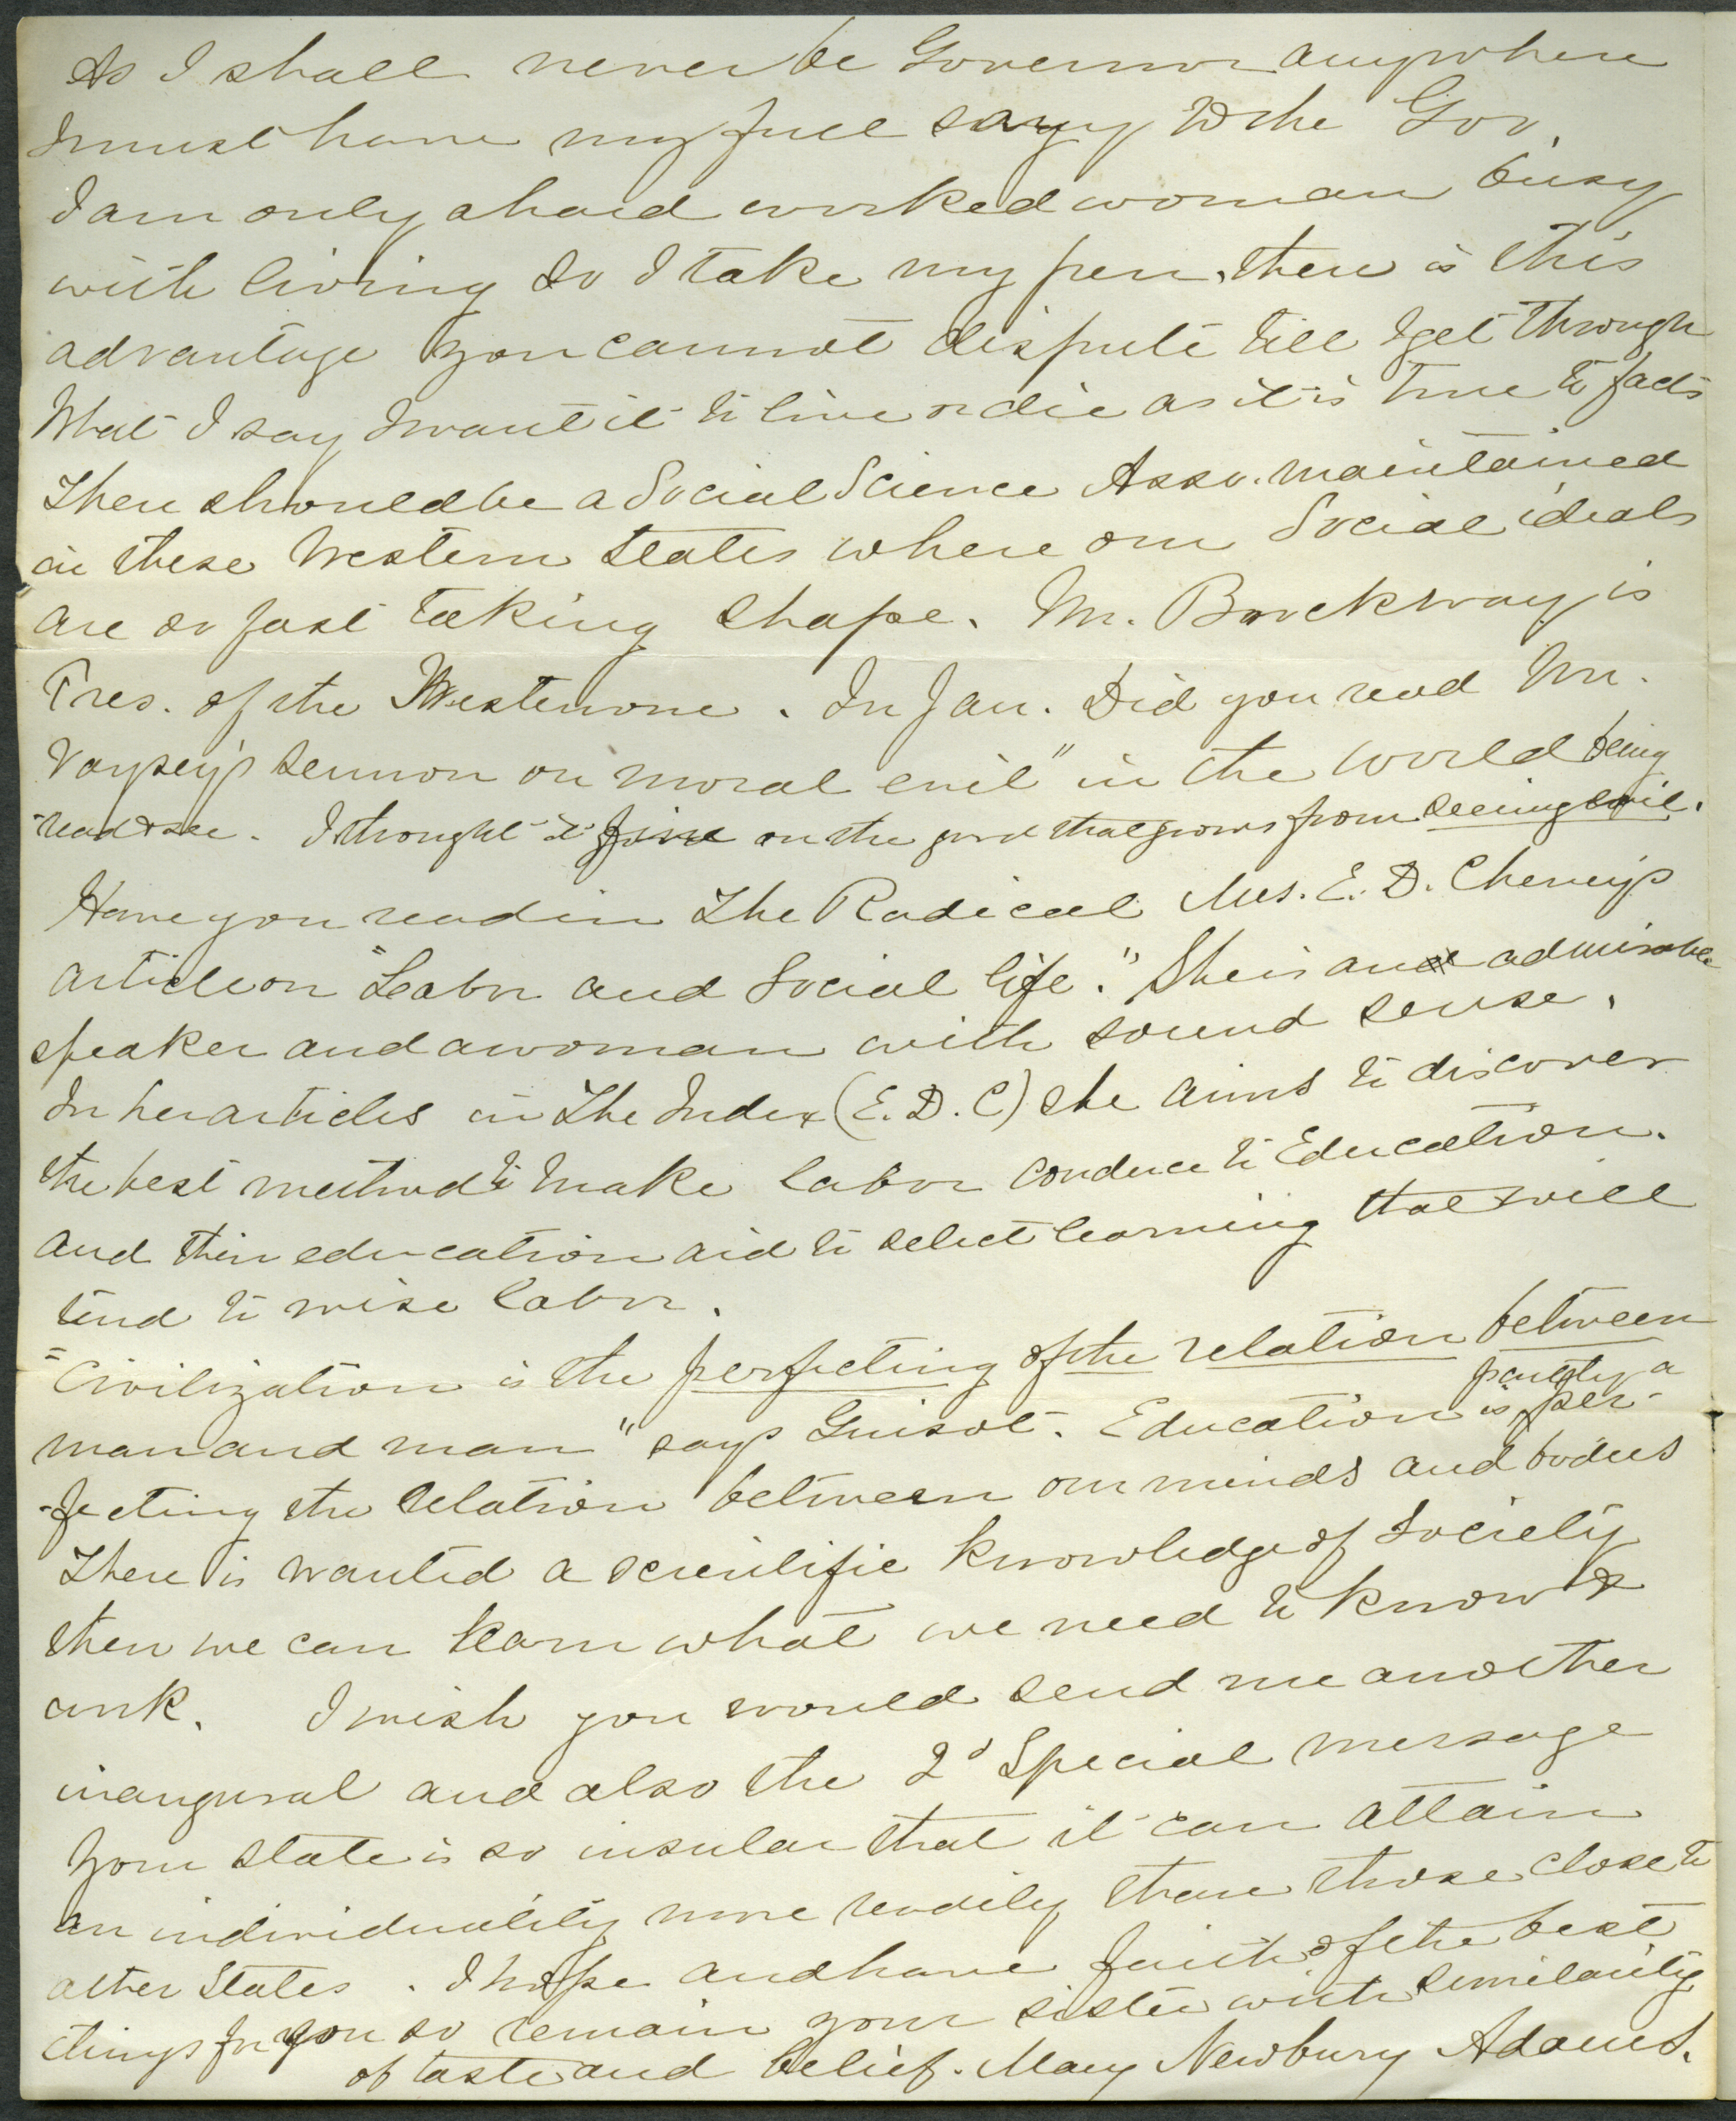 As I shall never be Governor anywhere
I must have my full say to the Gov.
I am only a hard worked woman busy
with living so I take my pen, there is this
advantage you cannot dispute till I get through
What I say I want it to live or die as it is true to facts
There should be a Social Science Asso. maintained
in these Western States where our Social ideals
are so fast taking shape. Mr. Brockway is
Pres. of the Western one. In Jan. Did you read Mr.
Voysey's sermon on "moral evil" in the world being
read & see. I thought it fine on the good that grows from seeing evil.
Have you read in The Radical Mrs. E. D. Cheney's
article on "Labor and Social life." She is an admirable
speaker and a woman with sound sense.
In her articles in The Index (E. D. C) she aims to discover
the best method to make labor conduce to Education.
and their education aid to select learning that will
tend to wise labor.
"Civilization is the perfecting of the relation between
man and man" says Guisot. Education is partly a per-
-fecting the relation between our minds and bodies
There is wanted a scientific knowledge of Society
then we can learn what we need to know &
work. I wish you would send me another
inaugural and also the 2d Special message
Your state is so insular that it can attain
an individuality more readily than those close to
other States. I hope and have faith of the best
things for you so remain your sister with similarity
of taste and belief. Mary Newbury Adams.